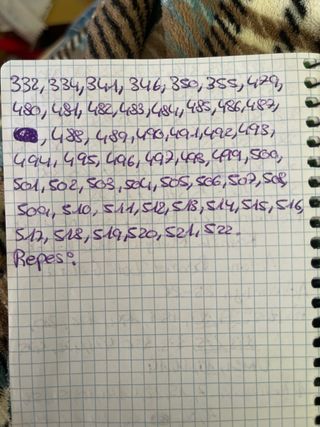 332, 334, 341, 346, 350, 355, 479,
480, 481, 482, 483, 484, 485, 486, 487,
, 488, 489, 490, 491, 492, 493,
494, 495, 496, 497, 498, 499, 500,
501, 502, 503, 504, 505, 506, 507, 508,
509, 510, 511, 512, 513, 514, 515, 516,
517, 518, 519, 520, 521, 522.
Repes: